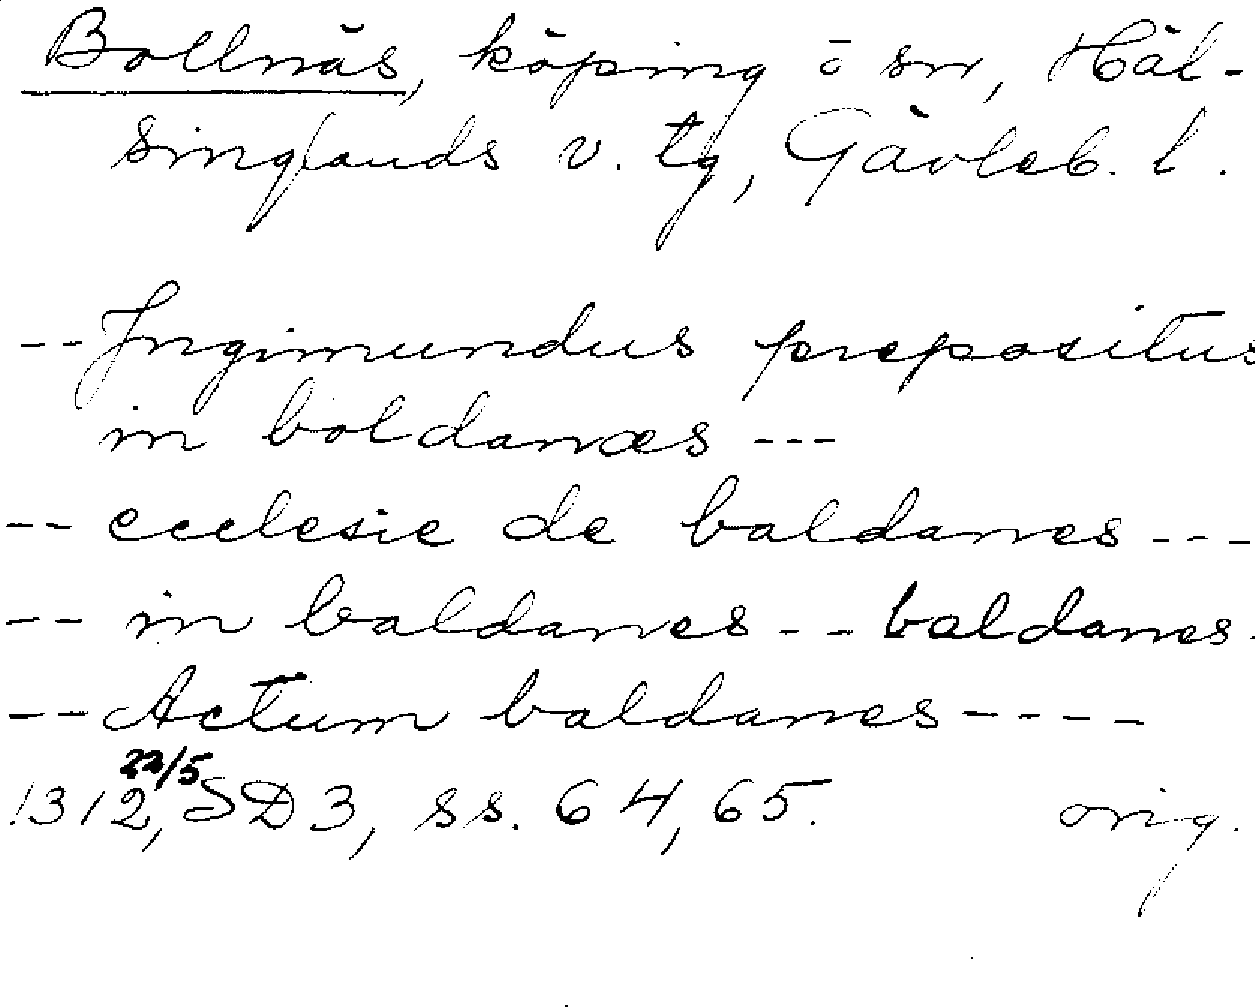 Bollnäs, köping o sn, Häl-
singlands v. tg, Gävleb. l.
-- Ingimundus prepositus
in boldanæs ---
-- ecclesie de baldanes ---
-- in baldanes -- baldanes.
-- Actum baldanes ----
1312 22/5, SD 3, ss. 64, 65. orig.